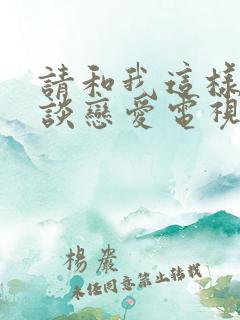 請和我這樣
談戀愛電視
楊嚴
未經同意禁止轉載